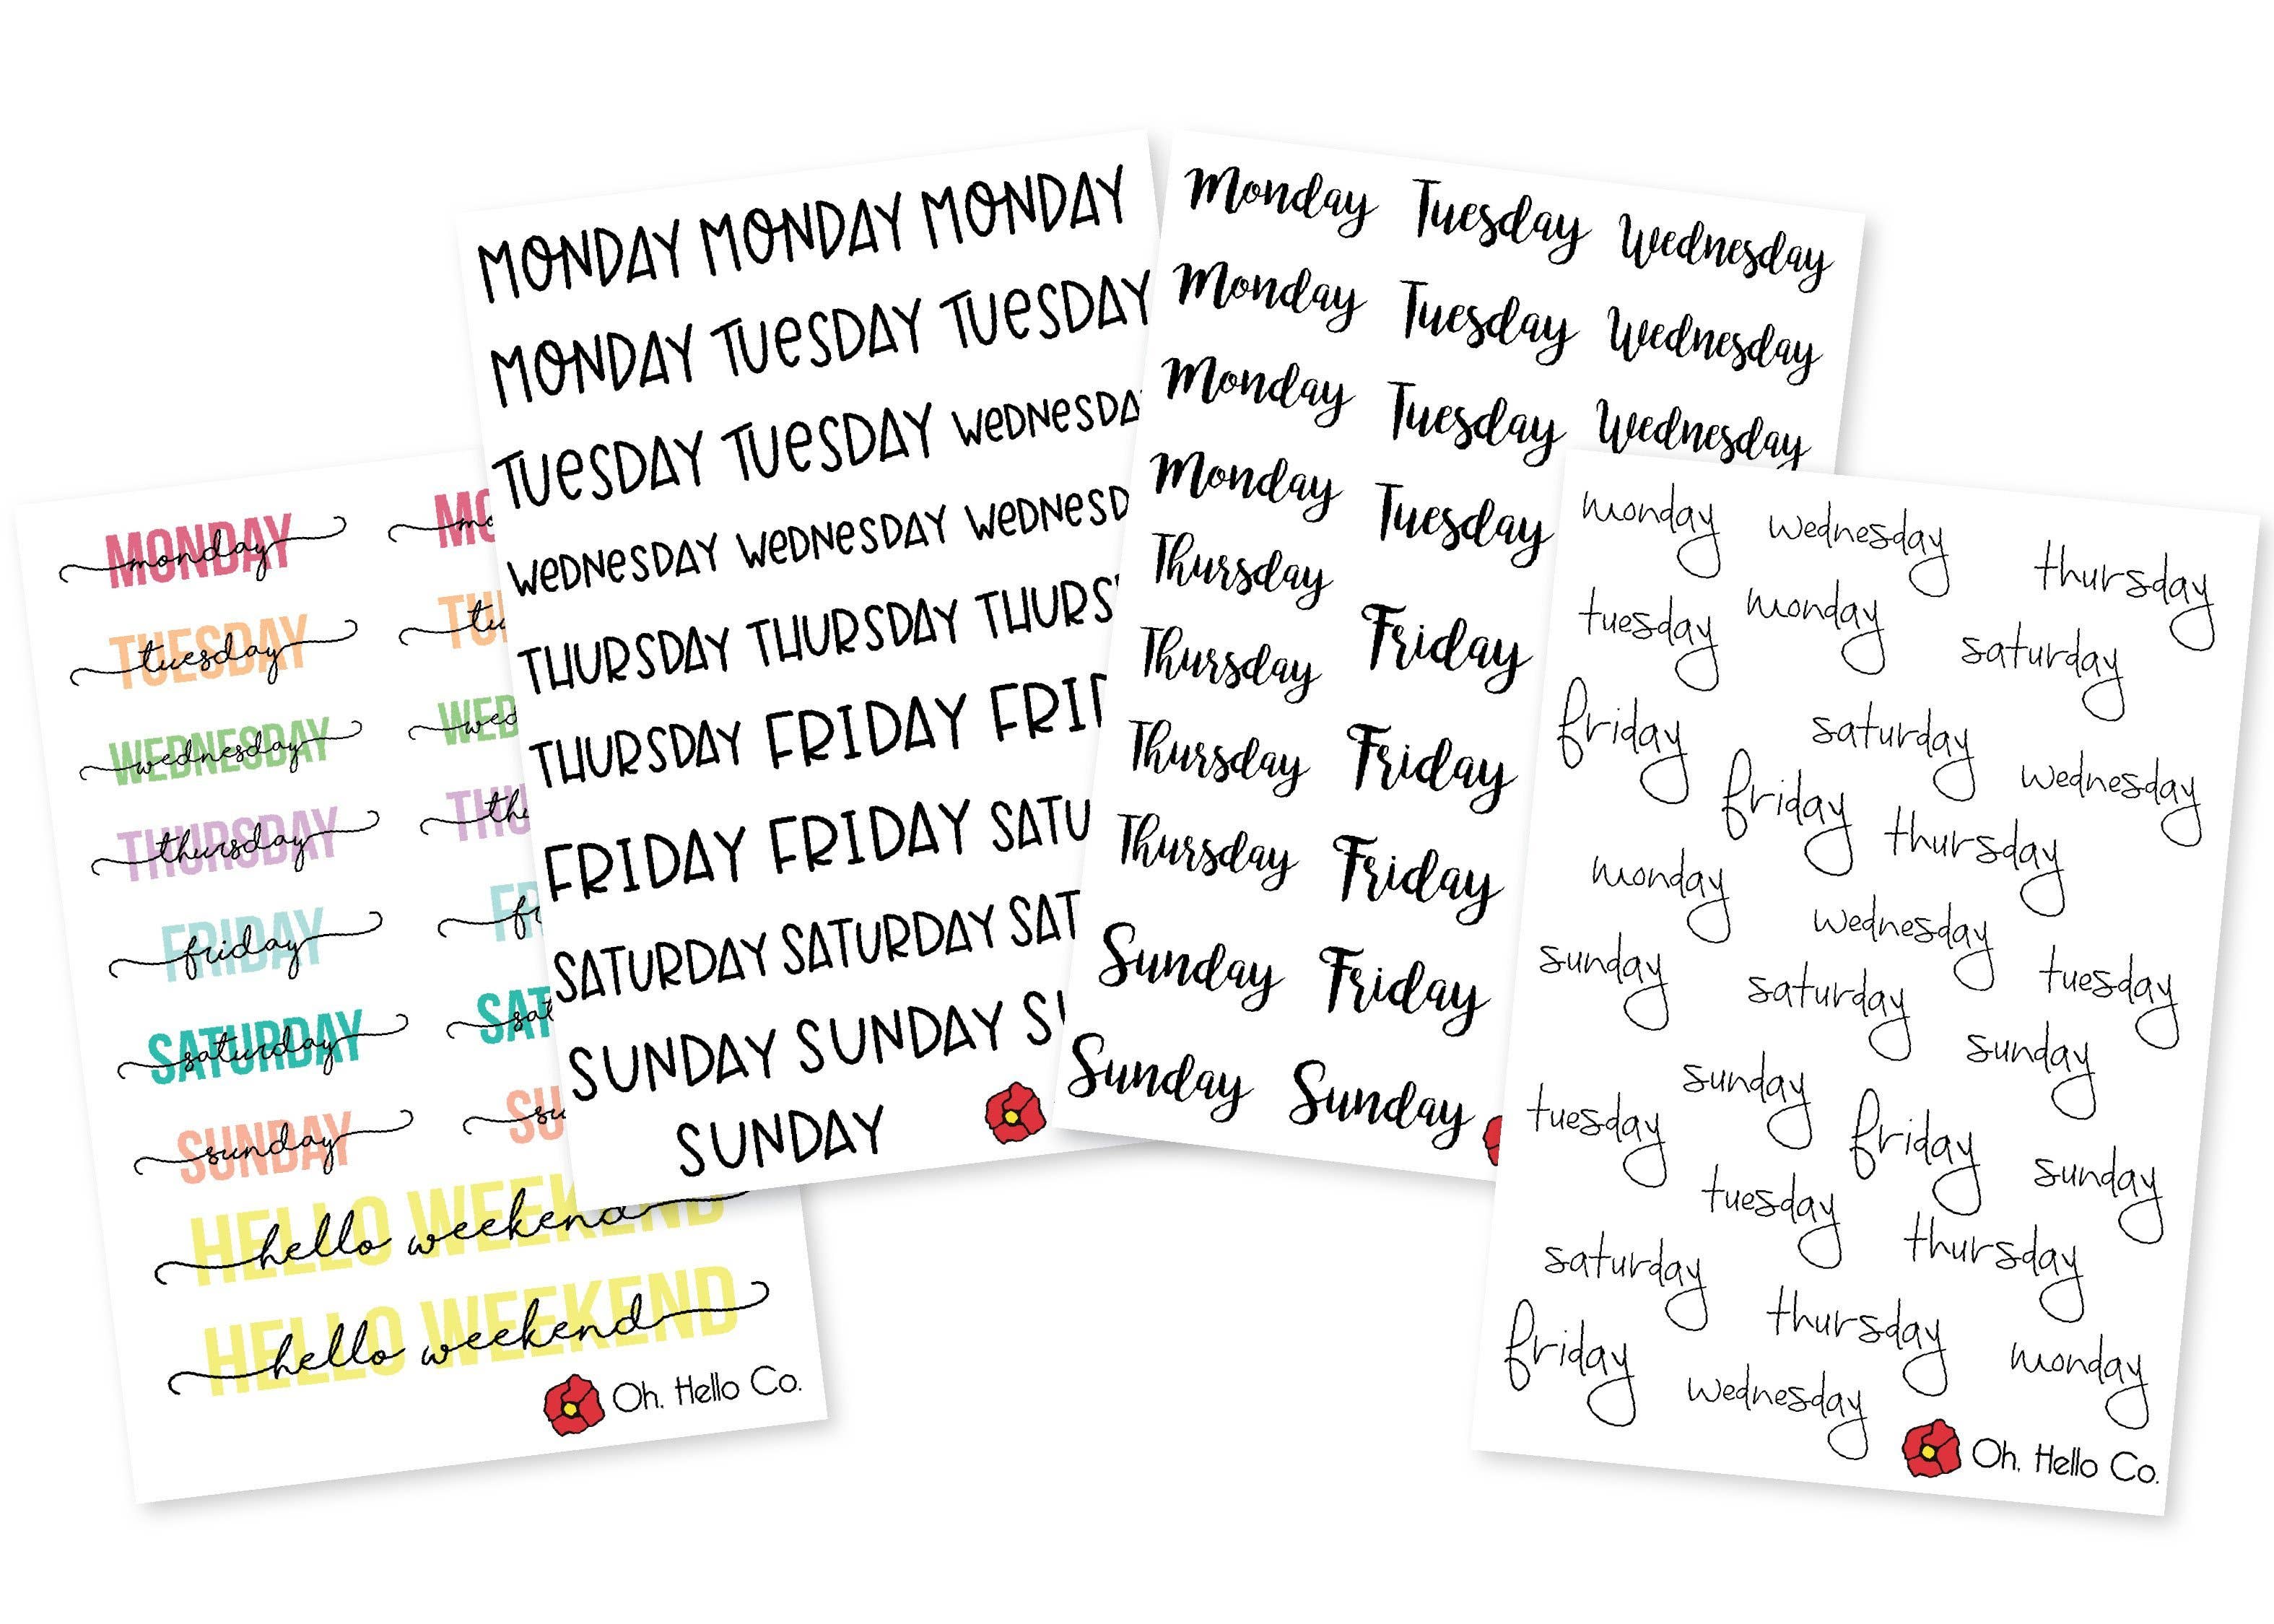 MONDAY monday
TUESDAY tuesday
WEDNESDAY wednesday
THURSDAY thursday
FRIDAY friday
SATURDAY saturday
SUNDAY sunday
HELLO WEEKEND hello weekend
HELLO WEEKEND hello weekend
Oh, Hello Co.
MONDAY MONDAY MONDAY
MONDAY TUeSDAY TUeSDAY
TUeSDAY TUeSDAY WeDNeSDA
WeDNeSDAY WeDNeSDAY WeDNeSD
THURSDAY THURSDAY THURS
THURSDAY FRIDAY FRI
FRIDAY FRIDAY SATU
SATURDAY SATURDAY SAT
SUNDAY SUNDAY SU
SUNDAY
Monday Tuesday Wednesday
Monday Tuesday Wednesday
Monday Tuesday Wednesday
Monday Tuesday
Thursday
Thursday Friday
Thursday Friday
Thursday Friday
Sunday Friday
Sunday Sunday
monday wednesday thursday
tuesday monday saturday
friday saturday wednesday
friday thursday
monday wednesday
sunday saturday tuesday
sunday sunday
tuesday friday sunday
tuesday thursday
saturday thursday monday
friday wednesday
Oh, Hello Co.